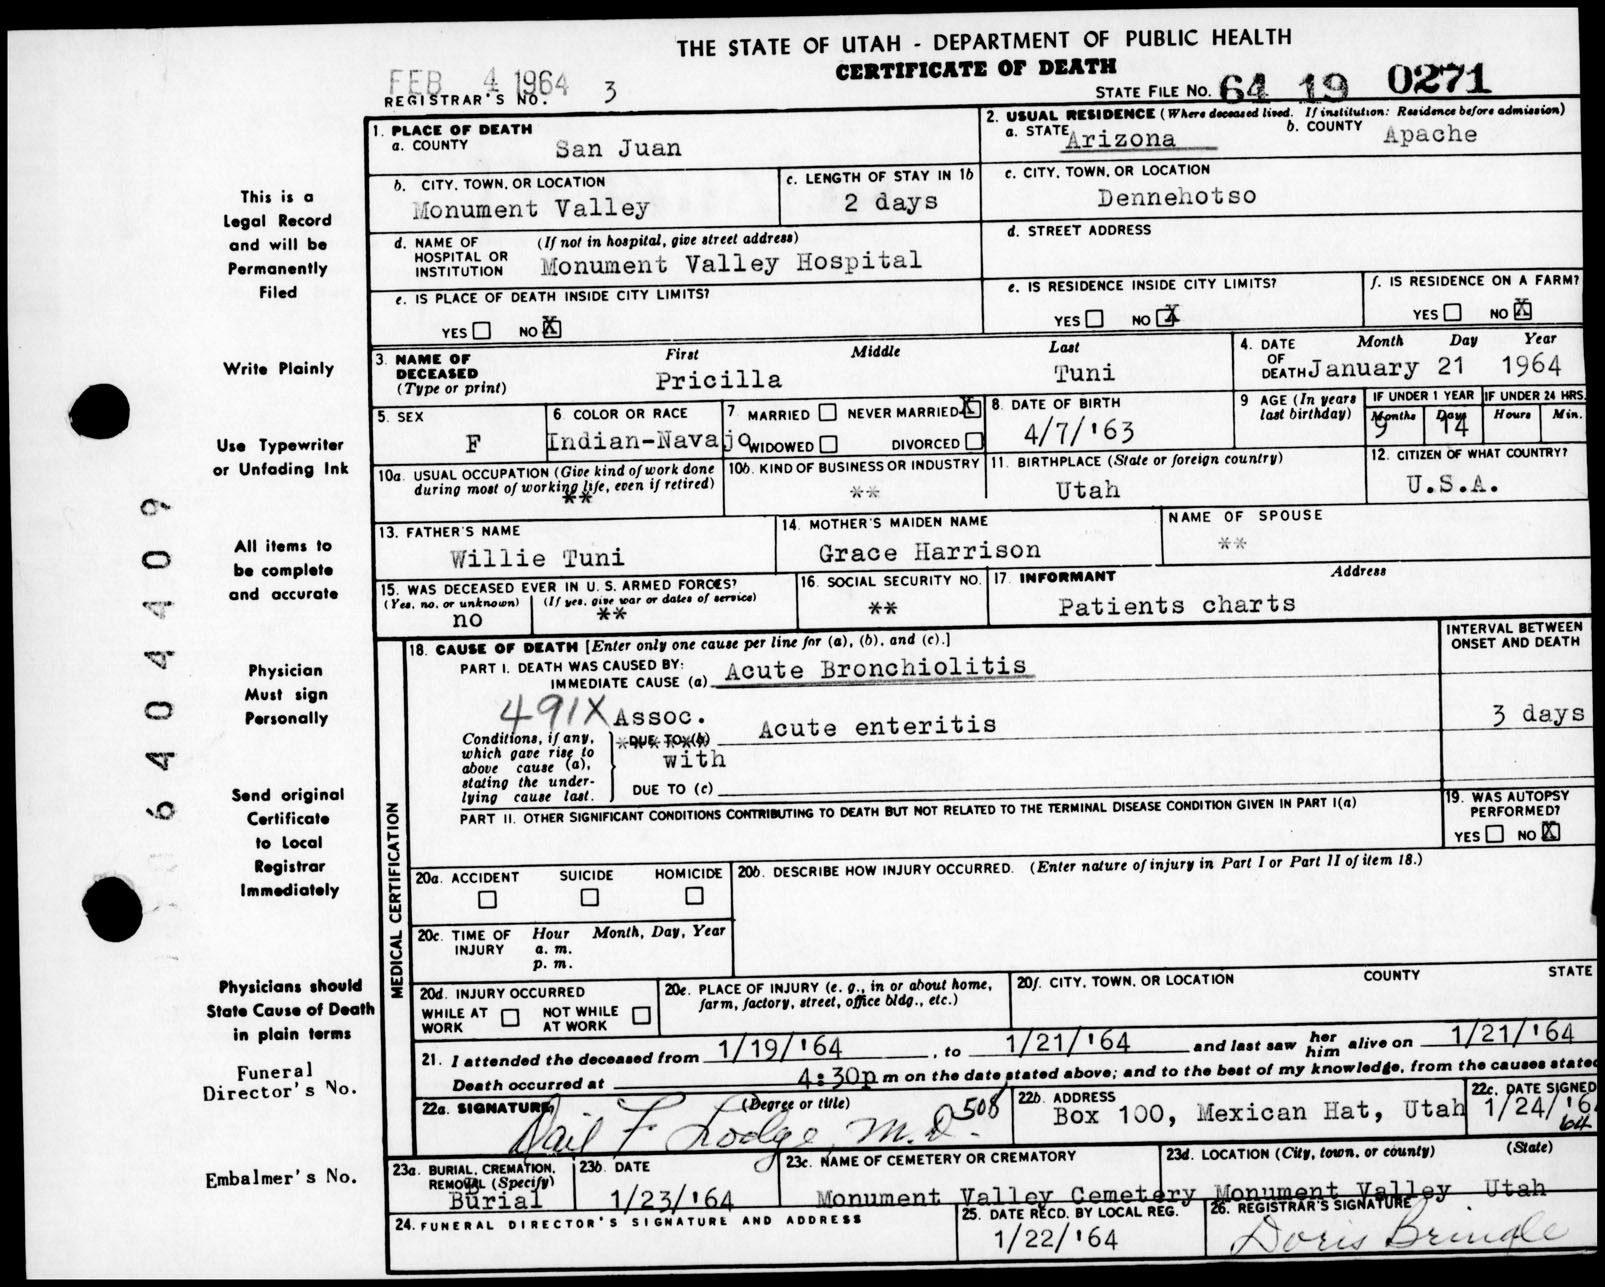 THE STATE OF UTAH - DEPARTMENT OF PUBLIC HEALTH
CERTIFICATE OF DEATH
FEB 4 1964
REGISTRAR'S NO. 3
STATE FILE NO. 64 19 0271
This is a
Legal Record
and will be
Permanently
Filed
Write Plainly
Use Typewriter
or Unfading Ink
All items to
be complete
and accurate
Physician
Must sign
Personally
Send original
Certificate
to Local
Registrar
Immediately
Physicians should
State Cause of Death
in plain terms
Funeral
Director's No.
Embalmer's No.
6404409
1. PLACE OF DEATH
a. COUNTY San Juan
2. USUAL RESIDENCE (Where deceased lived. If institution: Residence before admission)
a. STATE Arizona b. COUNTY Apache
b. CITY, TOWN, OR LOCATION
Monument Valley
c. LENGTH OF STAY IN 1b
2 days
c. CITY, TOWN, OR LOCATION
Dennehotso
d. NAME OF HOSPITAL OR INSTITUTION (If not in hospital, give street address)
Monument Valley Hospital
d. STREET ADDRESS
e. IS PLACE OF DEATH INSIDE CITY LIMITS?
YES NO X
e. IS RESIDENCE INSIDE CITY LIMITS?
YES NO X
f. IS RESIDENCE ON A FARM?
YES NO X
3. NAME OF DECEASED (Type or print)
First Middle Last
Pricilla Tuni
4. DATE OF DEATH Month Day Year
January 21 1964
5. SEX
F
6. COLOR OR RACE
Indian-Navajo
7. MARRIED NEVER MARRIED X
WIDOWED DIVORCED
8. DATE OF BIRTH
4/7/'63
9 AGE (In years last birthday)
IF UNDER 1 YEAR
Months Days
9 14
IF UNDER 24 HRS.
Hours Min.
10a. USUAL OCCUPATION (Give kind of work done during most of working life, even if retired)
**
10b. KIND OF BUSINESS OR INDUSTRY
**
11. BIRTHPLACE (State or foreign country)
Utah
12. CITIZEN OF WHAT COUNTRY?
U.S.A.
13. FATHER'S NAME
Willie Tuni
14. MOTHER'S MAIDEN NAME
Grace Harrison
NAME OF SPOUSE
**
15. WAS DECEASED EVER IN U. S. ARMED FORCES?
(Yes, no, or unknown) (If yes, give war or dates of service)
no **
16. SOCIAL SECURITY NO.
**
17. INFORMANT Address
Patients charts
MEDICAL CERTIFICATION
18. CAUSE OF DEATH [Enter only one cause per line for (a), (b), and (c).]
INTERVAL BETWEEN ONSET AND DEATH
PART I. DEATH WAS CAUSED BY:
IMMEDIATE CAUSE (a) Acute Bronchiolitis
491X
Conditions, if any, which gave rise to above cause (a), stating the underlying cause last.
Assoc.
DUE TO (b) Acute enteritis
with
3 days
DUE TO (c)
PART II. OTHER SIGNIFICANT CONDITIONS CONTRIBUTING TO DEATH BUT NOT RELATED TO THE TERMINAL DISEASE CONDITION GIVEN IN PART I(a)
19. WAS AUTOPSY PERFORMED?
YES NO X
20a. ACCIDENT SUICIDE HOMICIDE
20b. DESCRIBE HOW INJURY OCCURRED. (Enter nature of injury in Part I or Part II of item 18.)
20c. TIME OF INJURY Hour Month, Day, Year
a. m.
p. m.
20d. INJURY OCCURRED
WHILE AT WORK NOT WHILE AT WORK
20e. PLACE OF INJURY (e. g., in or about home, farm, factory, street, office bldg., etc.)
20f. CITY, TOWN, OR LOCATION COUNTY STATE
21. I attended the deceased from 1/19/'64, to 1/21/'64 and last saw her him alive on 1/21/'64
Death occurred at 4:30p m on the date stated above; and to the best of my knowledge, from the causes stated
22a. SIGNATURE (Degree or title)
Dail F. Lodge, M.D. 508
22b. ADDRESS
Box 100, Mexican Hat, Utah
22c. DATE SIGNED
1/24/'6
64
23a. BURIAL, CREMATION, REMOVAL (Specify)
Burial
23b. DATE
1/23/'64
23c. NAME OF CEMETERY OR CREMATORY
Monument Valley Cemetery
23d. LOCATION (City, town, or county) (State)
Monument Valley Utah
24. FUNERAL DIRECTOR'S SIGNATURE AND ADDRESS
25. DATE RECD. BY LOCAL REG.
1/22/'64
26. REGISTRAR'S SIGNATURE
Doris Bringle